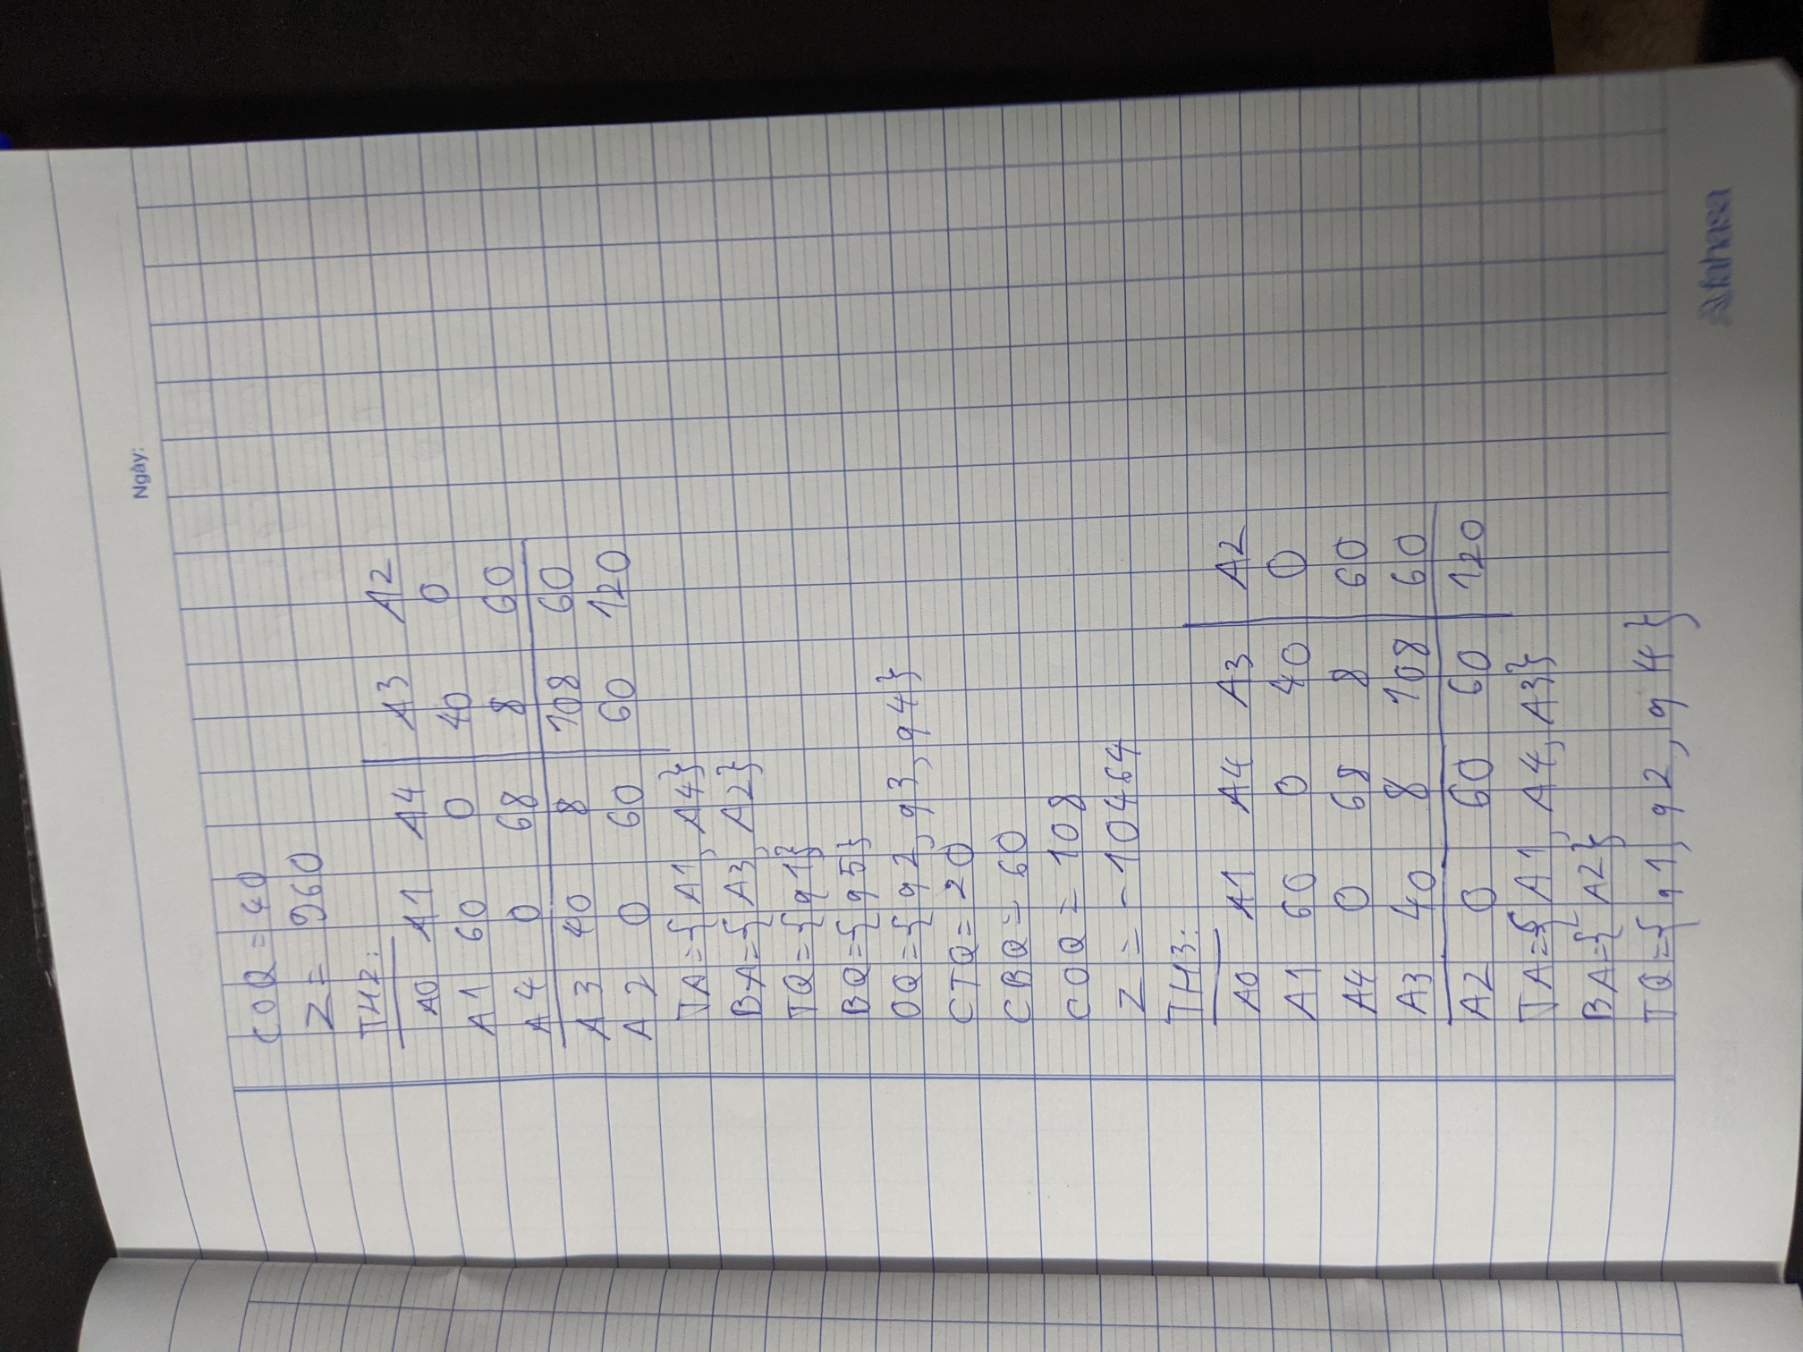 Ngày:
COQ = 40
Z = 960
TH2:
A0 A1 A4 A3 A2
A1 60 0 40 0
A4 0 68 8 60
A3 40 8 108 60
A2 0 60 60 120
TA = {A1, A4}
BA = {A3, A2}
TQ = {q1}
BQ = {q5}
OQ = {q2, q3, q4}
CTQ = 20
CBQ = 60
COQ = 108
Z = -10464
TH3:
A0 A1 A4 A3 A2
A1 60 0 40 0
A4 0 68 8 60
A3 40 8 108 60
A2 0 60 60 120
TA = {A1, A4, A3}
BA = {A2}
TQ = {q1, q2, q4}
fahasa